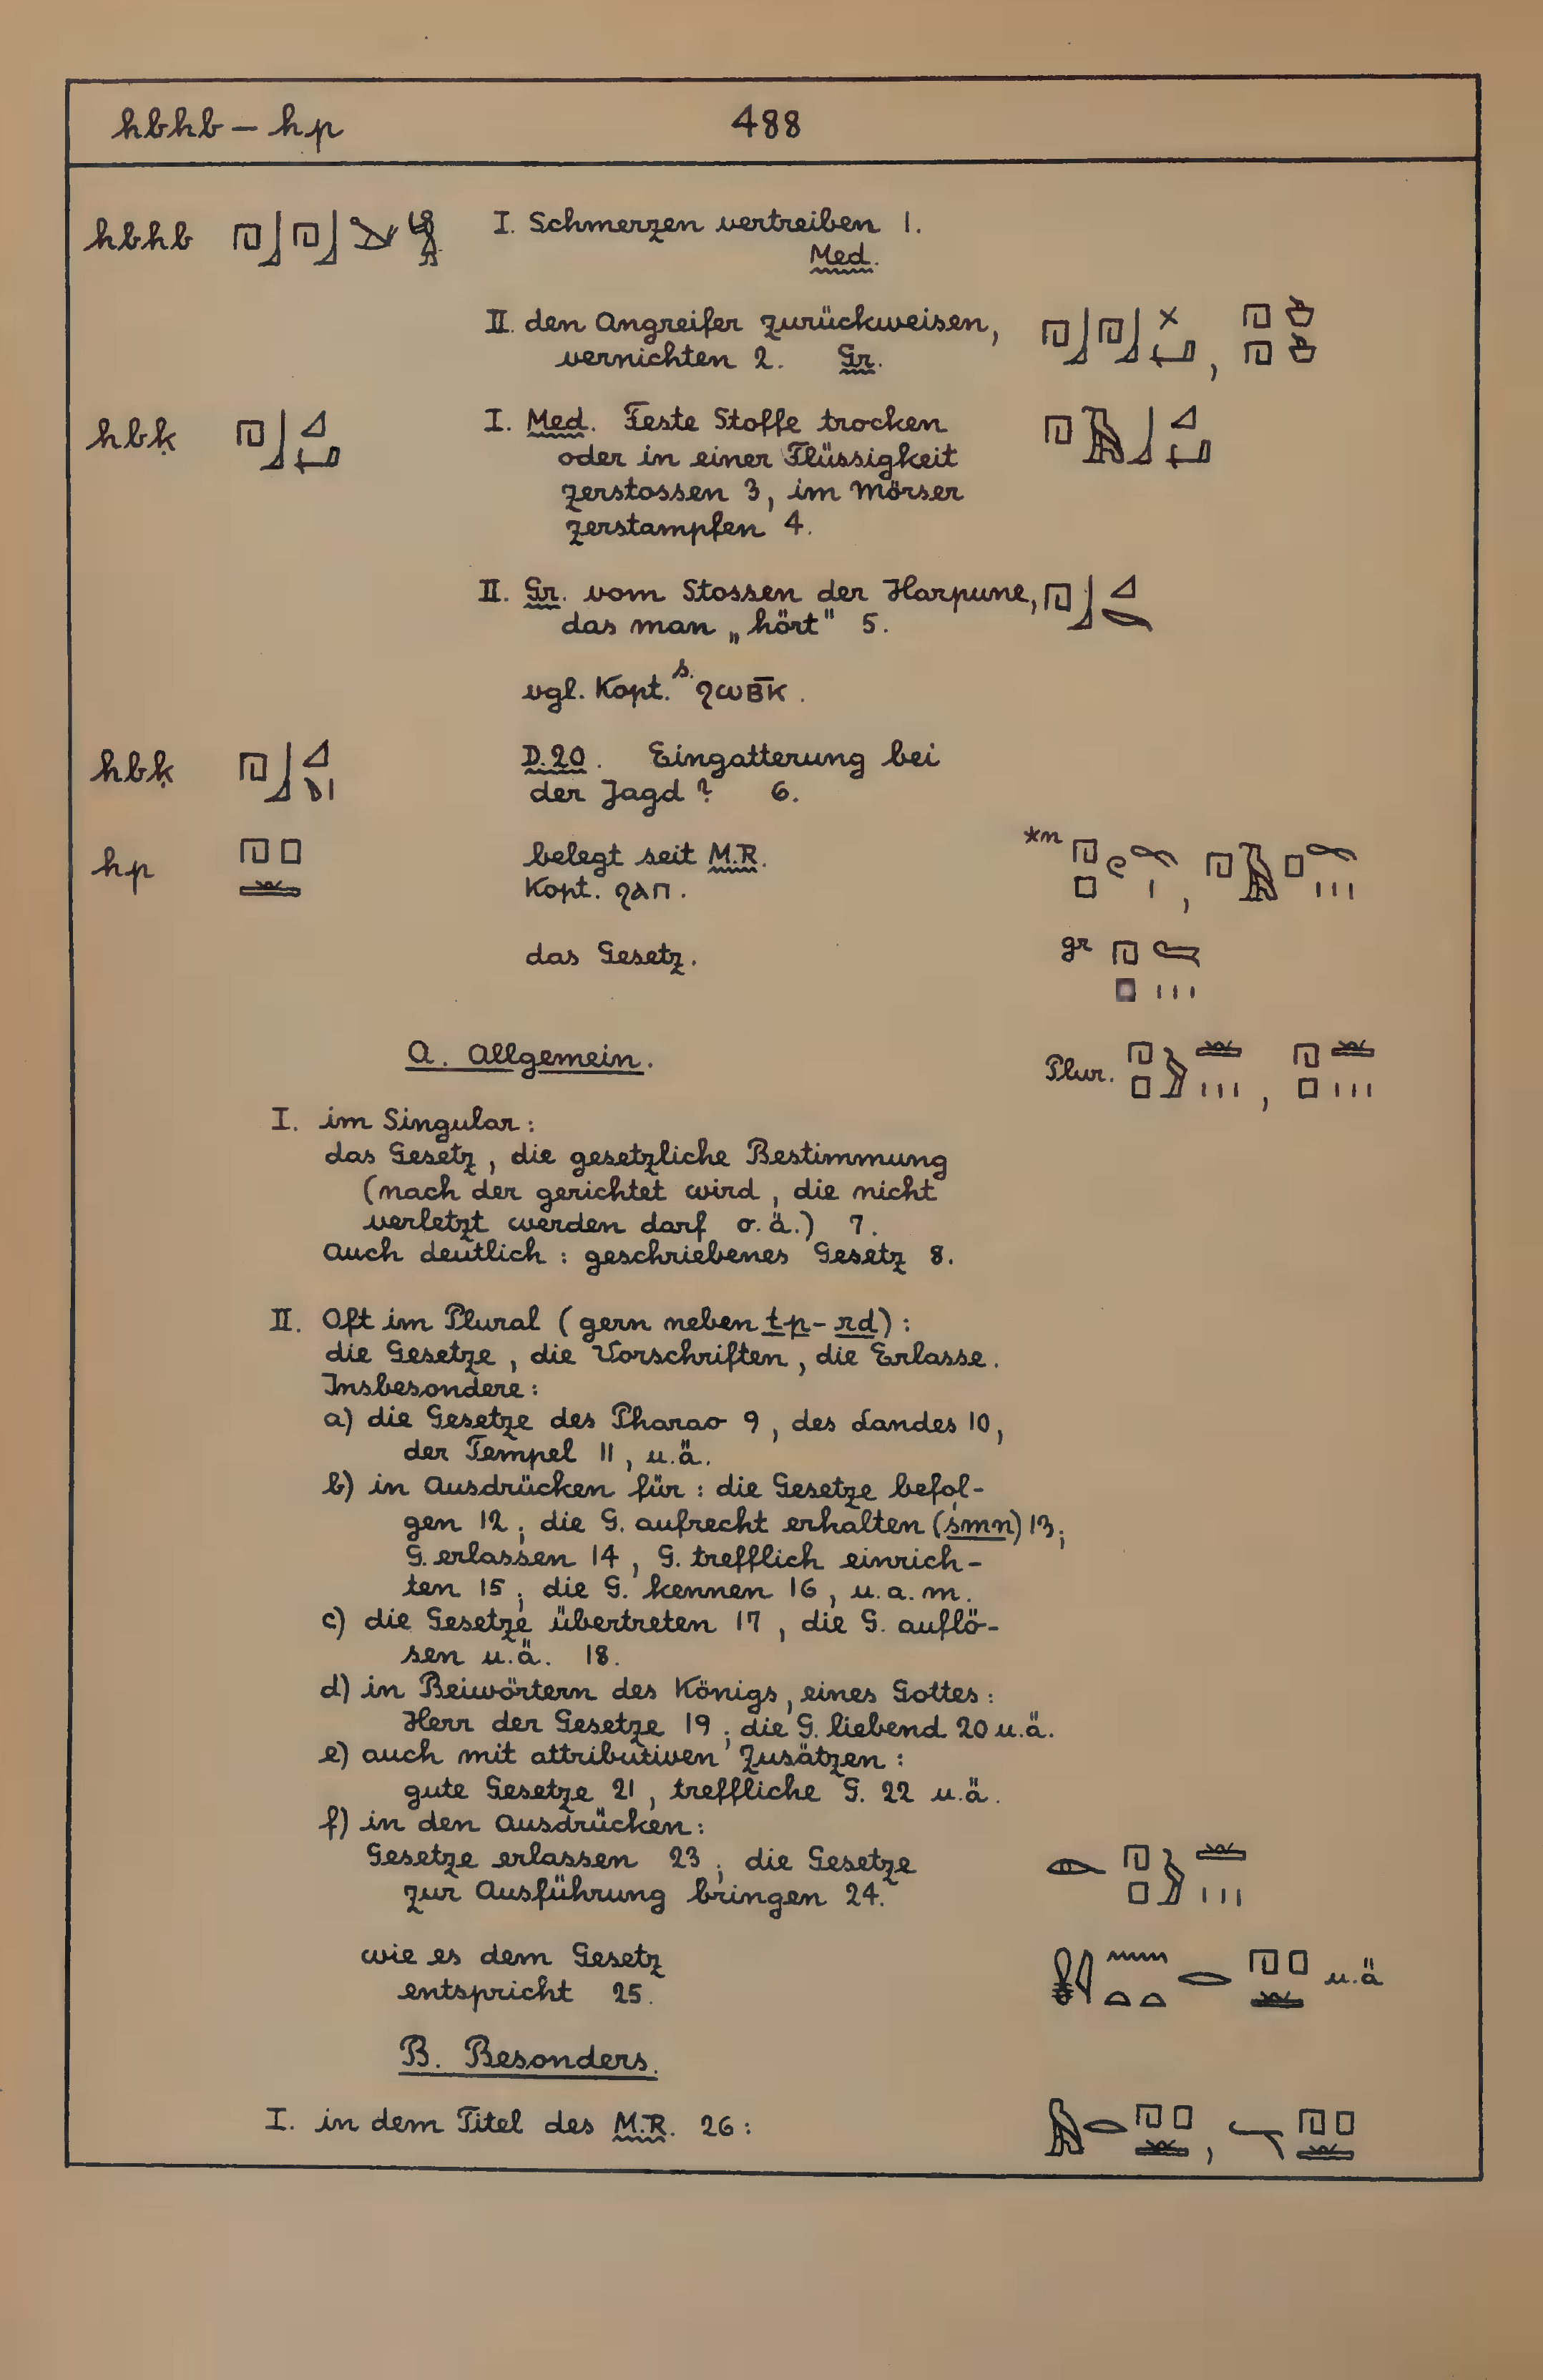 hbhb – hp 488
hbhb I. Schmerzen vertreiben 1.
Med.
II. den Angreifer zurückweisen,
vernichten 2. Gr.
hbḳ I. Med. Feste Stoffe trocken
oder in einer Flüssigkeit
zerstossen 3, im Mörser
zerstampfen 4.
II. Gr. vom Stossen der Harpune,
das man „hört" 5.
vgl. Kopt. S. ϩωⲃ̄ⲕ.
hbḳ D.20. Eingatterung bei
der Jagd? 6.
hp belegt seit M.R. *n
Kopt. ϩⲁⲡ.
das Gesetz. gr
A. Allgemein.
Plur.
I. im Singular:
das Gesetz, die gesetzliche Bestimmung
(nach der gerichtet wird, die nicht
verletzt werden darf o.ä.) 7.
Auch deutlich: geschriebenes Gesetz 8.
II. Oft im Plural (gern neben tp-rd):
die Gesetze, die Vorschriften, die Erlasse.
Insbesondere:
a) die Gesetze des Pharao 9, des Landes 10,
der Tempel 11, u.ä.
b) in Ausdrücken für: die Gesetze befol-
gen 12; die G. aufrecht erhalten (śmn) 13;
G. erlassen 14, G. trefflich einrich-
ten 15; die G. kennen 16, u.a.m.
c) die Gesetze übertreten 17, die G. auflö-
sen u.ä. 18.
d) in Beiwörtern des Königs, eines Gottes:
Herr der Gesetze 19; die G. liebend 20 u.ä.
e) auch mit attributiven Zusätzen:
gute Gesetze 21, treffliche G. 22 u.ä.
f) in den Ausdrücken:
Gesetze erlassen 23; die Gesetze
zur Ausführung bringen 24.
wie es dem Gesetz
entspricht 25. u.ä
B. Besonders.
I. in dem Titel des M.R. 26: